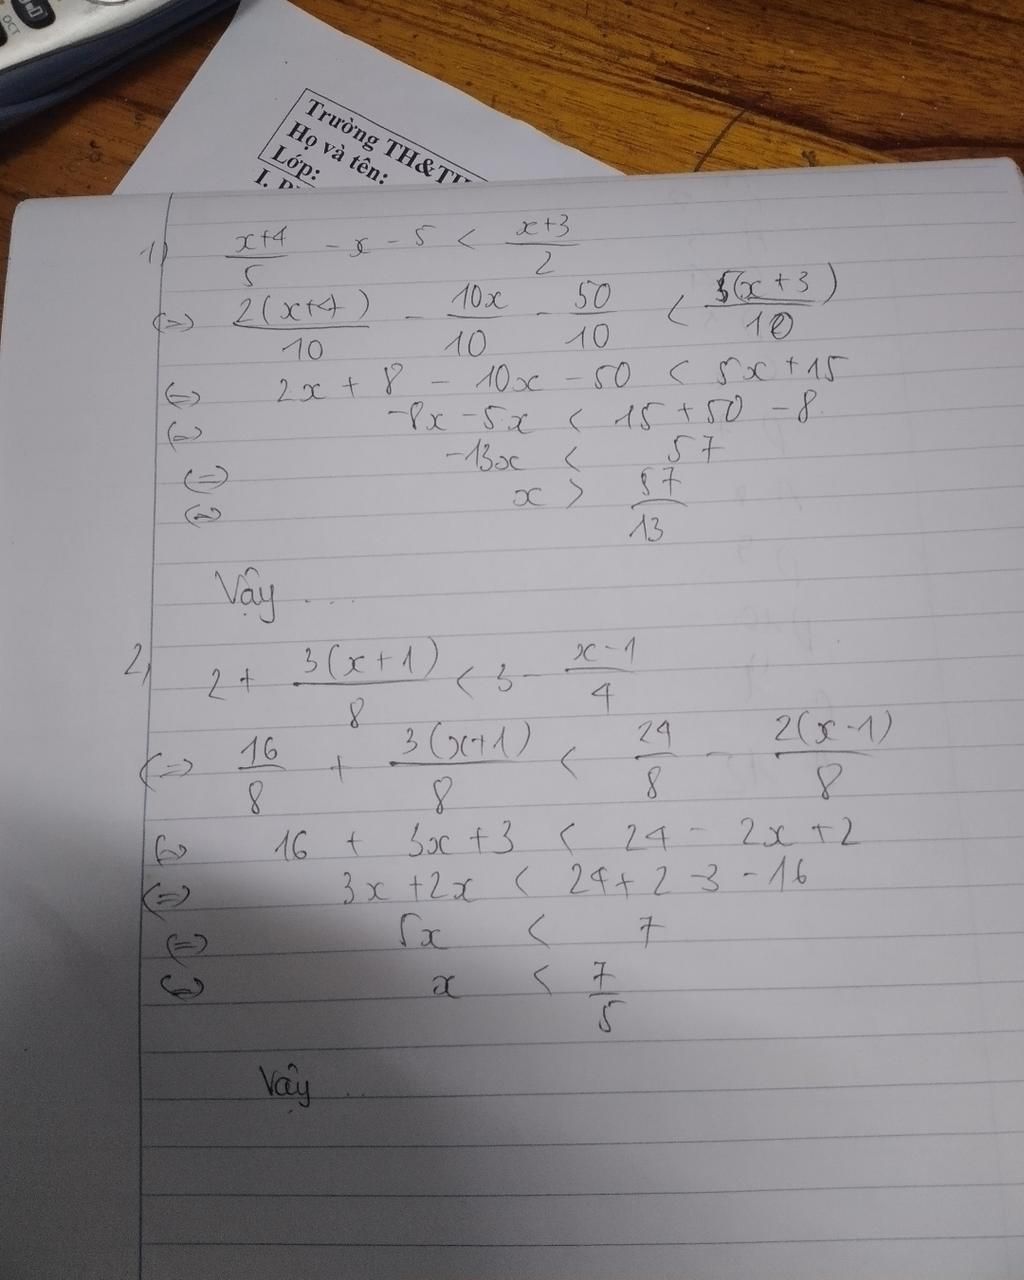 OCT
Trường TH&TH
Họ và tên:
Lớp:
I.
1) \frac{x+4}{5} - x - 5 < \frac{x+3}{2}
(=) \frac{2(x+4)}{10} - \frac{10x}{10} - \frac{50}{10} < \frac{5(x+3)}{10}
(=) 2x + 8 - 10x - 50 < 5x + 15
(=) -8x - 5x < 15 + 50 - 8
(=) -13x < 57
(=) x > \frac{57}{13}
Vậy ....
2, 2 + \frac{3(x+1)}{8} < 3 - \frac{x-1}{4}
(=) \frac{16}{8} + \frac{3(x+1)}{8} < \frac{24}{8} - \frac{2(x-1)}{8}
(=) 16 + 3x + 3 < 24 - 2x + 2
(=) 3x + 2x < 24 + 2 - 3 - 16
(=) 5x < 7
(=) x < \frac{7}{5}
Vậy ..